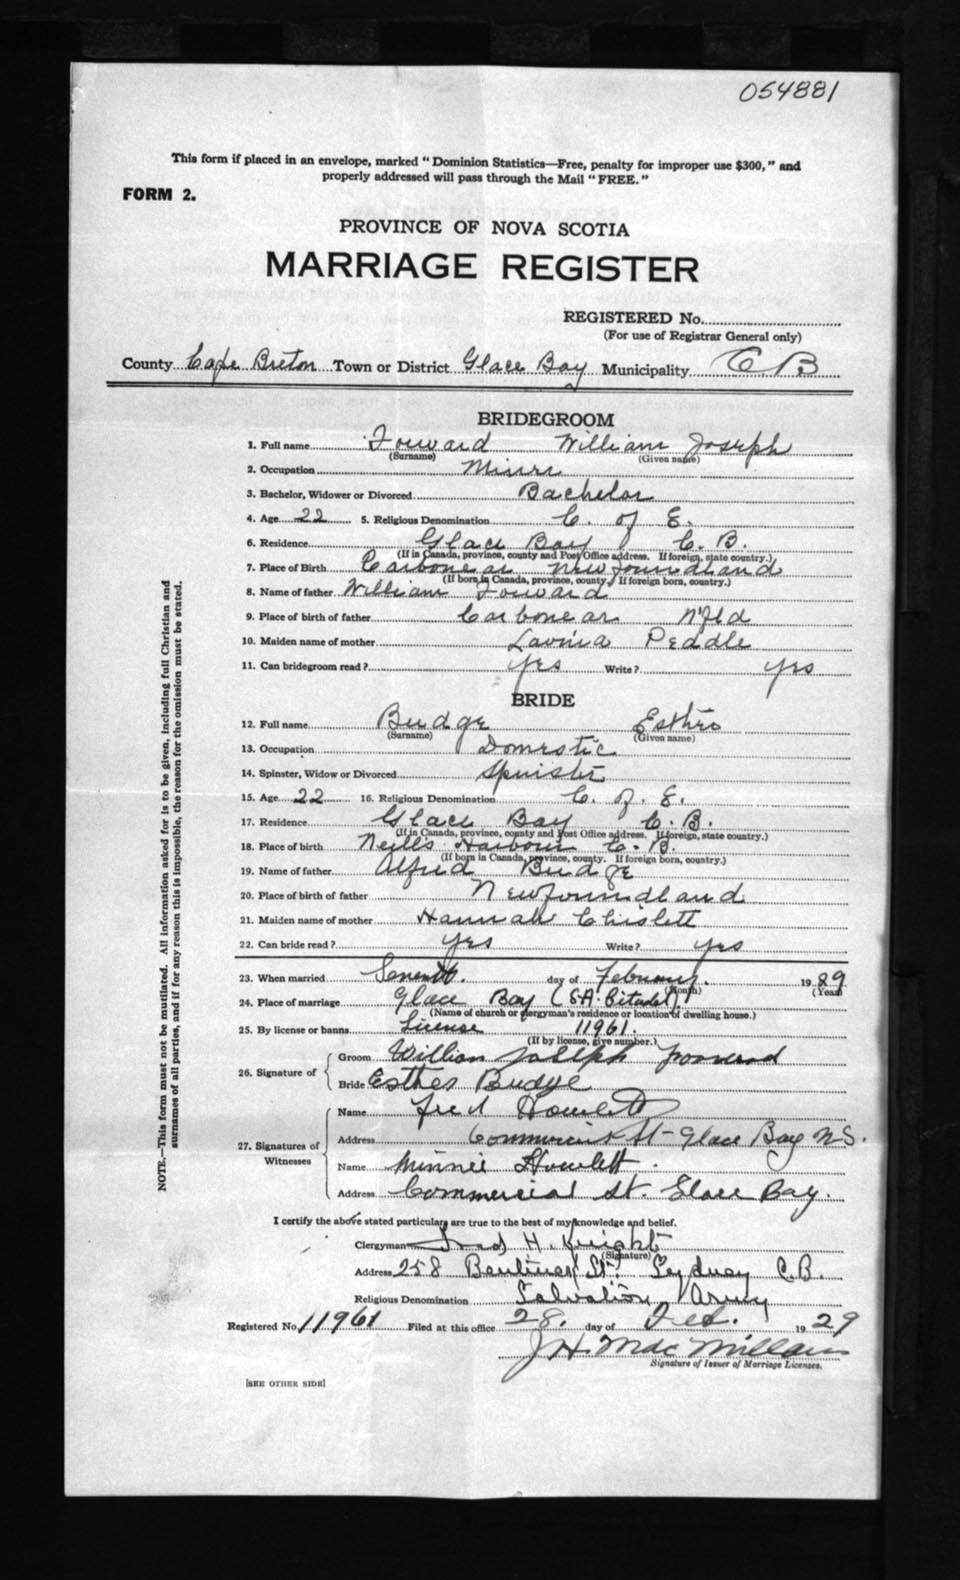 054881
This form if placed in an envelope, marked "Dominion Statistics—Free, penalty for improper use $300," and
properly addressed will pass through the Mail "FREE."
FORM 2.
PROVINCE OF NOVA SCOTIA
MARRIAGE REGISTER
REGISTERED No.
(For use of Registrar General only)
County Cape Breton Town or District Glace Bay Municipality C B
BRIDEGROOM
1. Full name Forward William Joseph
(Surname) (Given name)
2. Occupation Miner
3. Bachelor, Widower or Divorced Bachelor
4. Age 22 5. Religious Denomination C. of E.
6. Residence Glace Bay C. B.
(If in Canada, province, county and Post Office address. If foreign, state country.)
7. Place of Birth Carbonear Newfoundland
(If born in Canada, province, county. If foreign born, country.)
8. Name of father William Forward
9. Place of birth of father Carbonear Nfld
10. Maiden name of mother Lavinia Peddle
11. Can bridegroom read? yes Write? yes
BRIDE
12. Full name Budge Esther
(Surname) (Given name)
13. Occupation Domestic
14. Spinster, Widow or Divorced Spinster
15. Age 22 16. Religious Denomination C. of E.
17. Residence Glace Bay C. B.
(If in Canada, province, county and Post Office address. If foreign, state country.)
18. Place of birth Neill's Harbour C. B.
(If born in Canada, province, county. If foreign born, country.)
19. Name of father Alfred Budge
20. Place of birth of father Newfoundland
21. Maiden name of mother Hannah Chislett
22. Can bride read? yes Write? yes
23. When married Seventh. day of February. 1929
(Month) (Year)
24. Place of marriage Glace Bay (S.A. Citadel)
(Name of church or clergyman's residence or location of dwelling house.)
25. By license or banns License 11961.
(If by license, give number.)
26. Signature of
Groom William Joseph Forward
Bride Esther Budge
27. Signatures of Witnesses
Name Fred Howlett
Address Commercial St- Glace Bay N.S.
Name Minnie Howlett.
Address Commercial St. Glace Bay.
I certify the above stated particulars are true to the best of my knowledge and belief.
Clergyman Fred H. Knight
(Signature)
Address 258 St. Sydney C.B.
Religious Denomination Salvation Army
Registered No. 11961 Filed at this office 28. day of Feb. 1929
J H. Mac Millan
Signature of Issuer of Marriage Licenses.
[SEE OTHER SIDE]
NOTE.—This form must not be mutilated. All information asked for is to be given, including full Christian and
surnames of all parties, and if for any reason this is impossible, the reason for the omission must be stated.